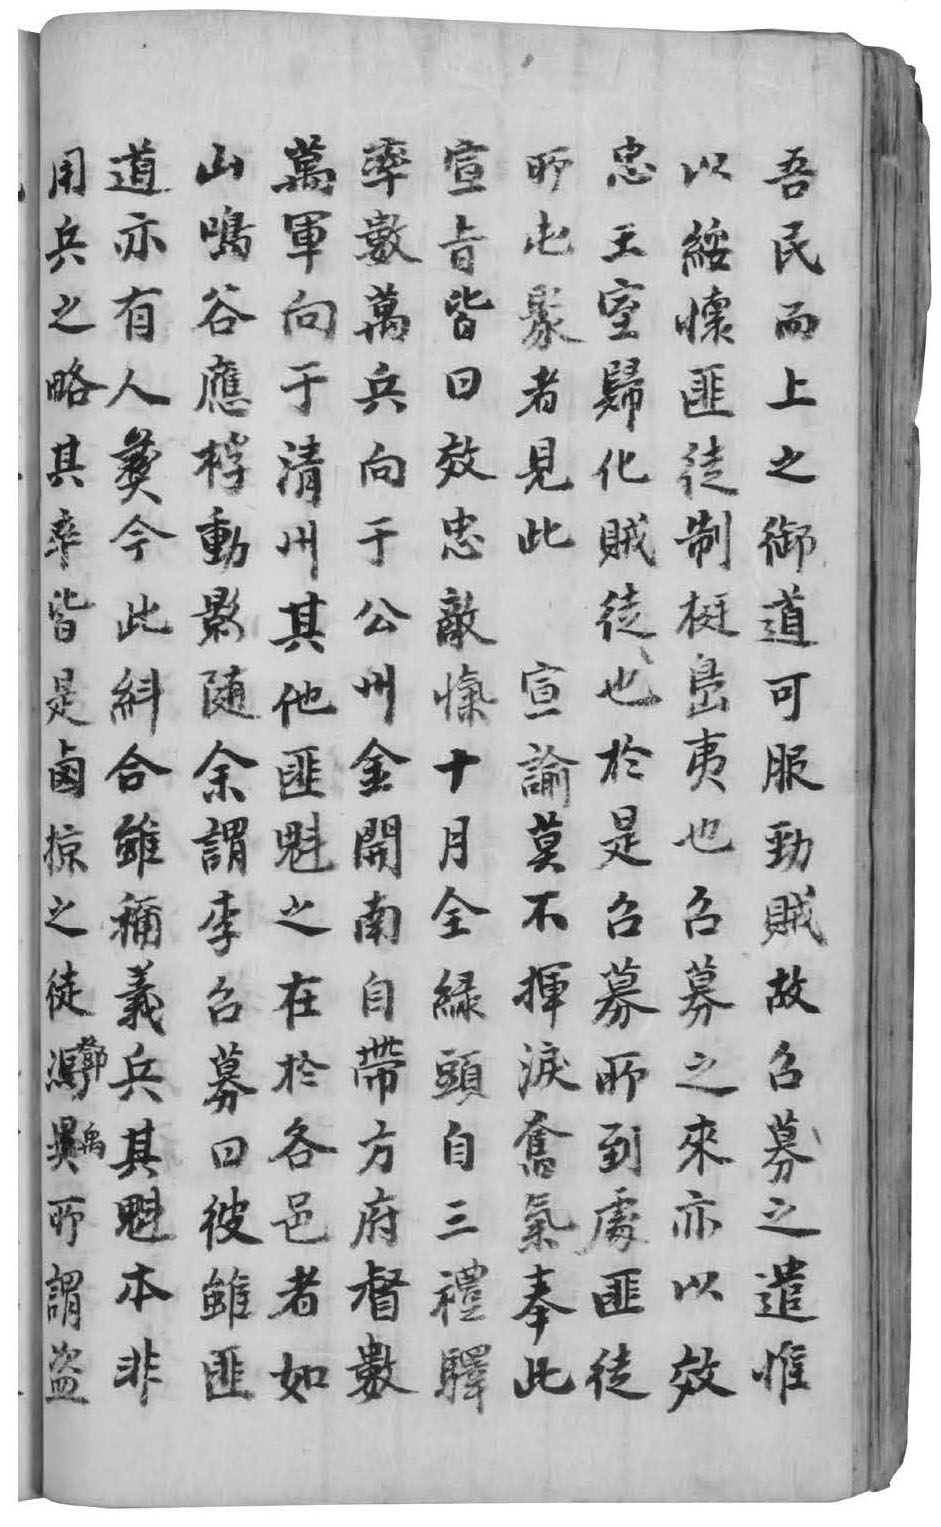 吾民而上之御道可服勁賊故召募之遣惟
以綏懷匪徒制梃島夷也召募之來亦以效
忠王室歸化賊徒也於是召募所到處匪徒
所屯聚者見此　宣諭莫不揮淚奮氣奉此
宣旨皆曰效忠敵愾十月全綠頭自三禮驛
率數萬兵向于公州金開南自帶方府督數
萬軍向于清州其他匪魁之在於各邑者如
山鳴谷應桴動影随余謂李召募曰彼雖匪
道亦有人彛今此糾合雖稱義兵其魁本非
用兵之略其率皆是鹵掠之徒鄭馮異禹所謂盜